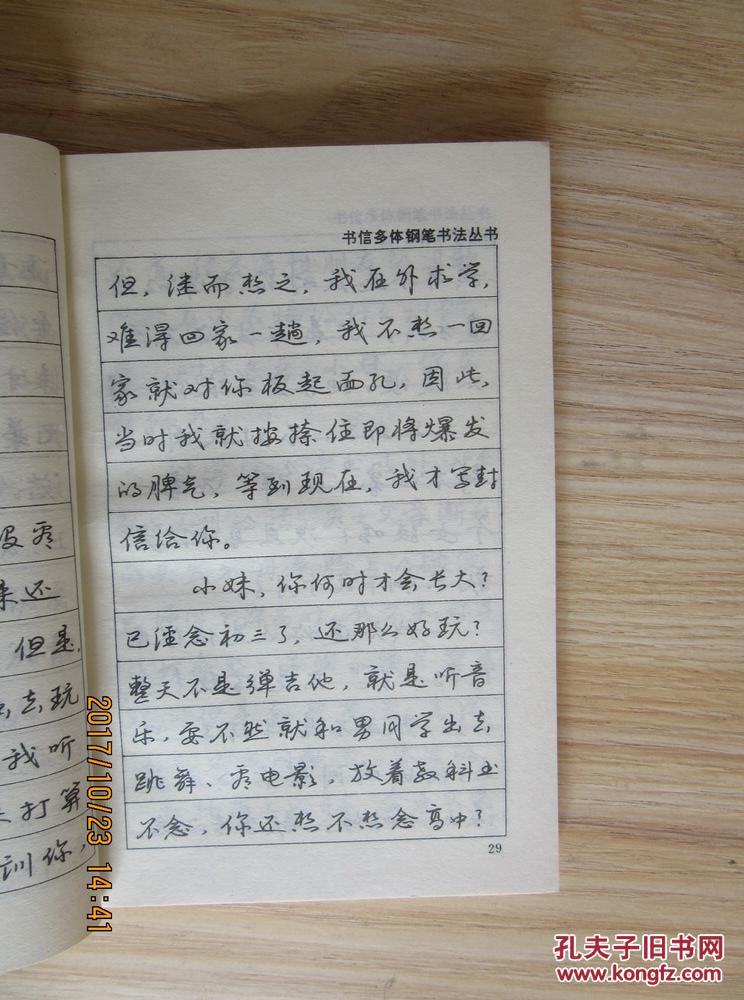 书信多体钢笔书法丛书
但，继而想之，我在外求学，
难得回家一趟，我不想一回
家就对你板起面孔，因此，
当时我就按捺住即将爆发
的脾气，等到现在，我才写封
信给你。
小妹，你何时才会长大？
已经念初三了，还那么好玩？
整天不是弹吉他，就是听音
乐，要不然就和男同学出去
跳舞、看电影，放着教科书
不念，你还想不想念高中？
29
没看
来还
但是，
去玩
我听
打算
训你，
2017/10/23 14:41
孔夫子旧书网
www.kongfz.com